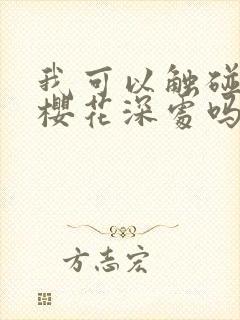 我可以触碰
樱花深处吗
方志宏